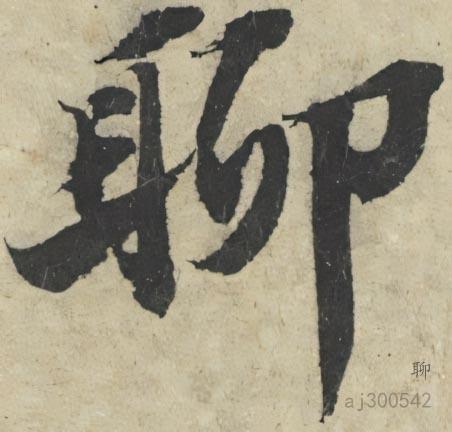 聊
聊
aj300542